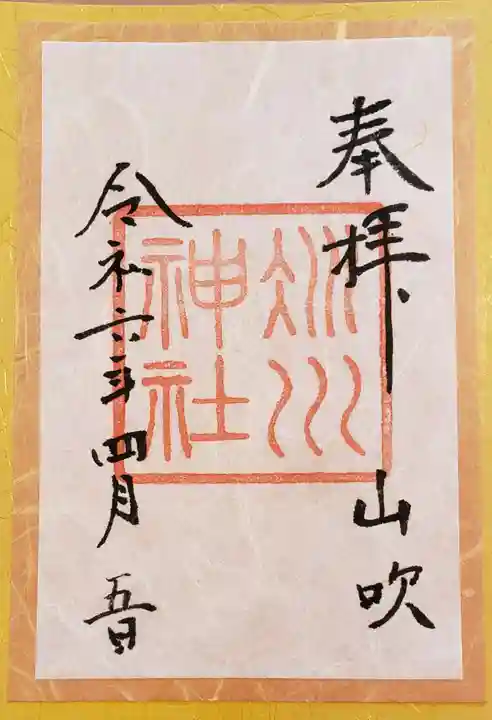 奉拝 山吹
氷川
神社
令和六年四月 五日